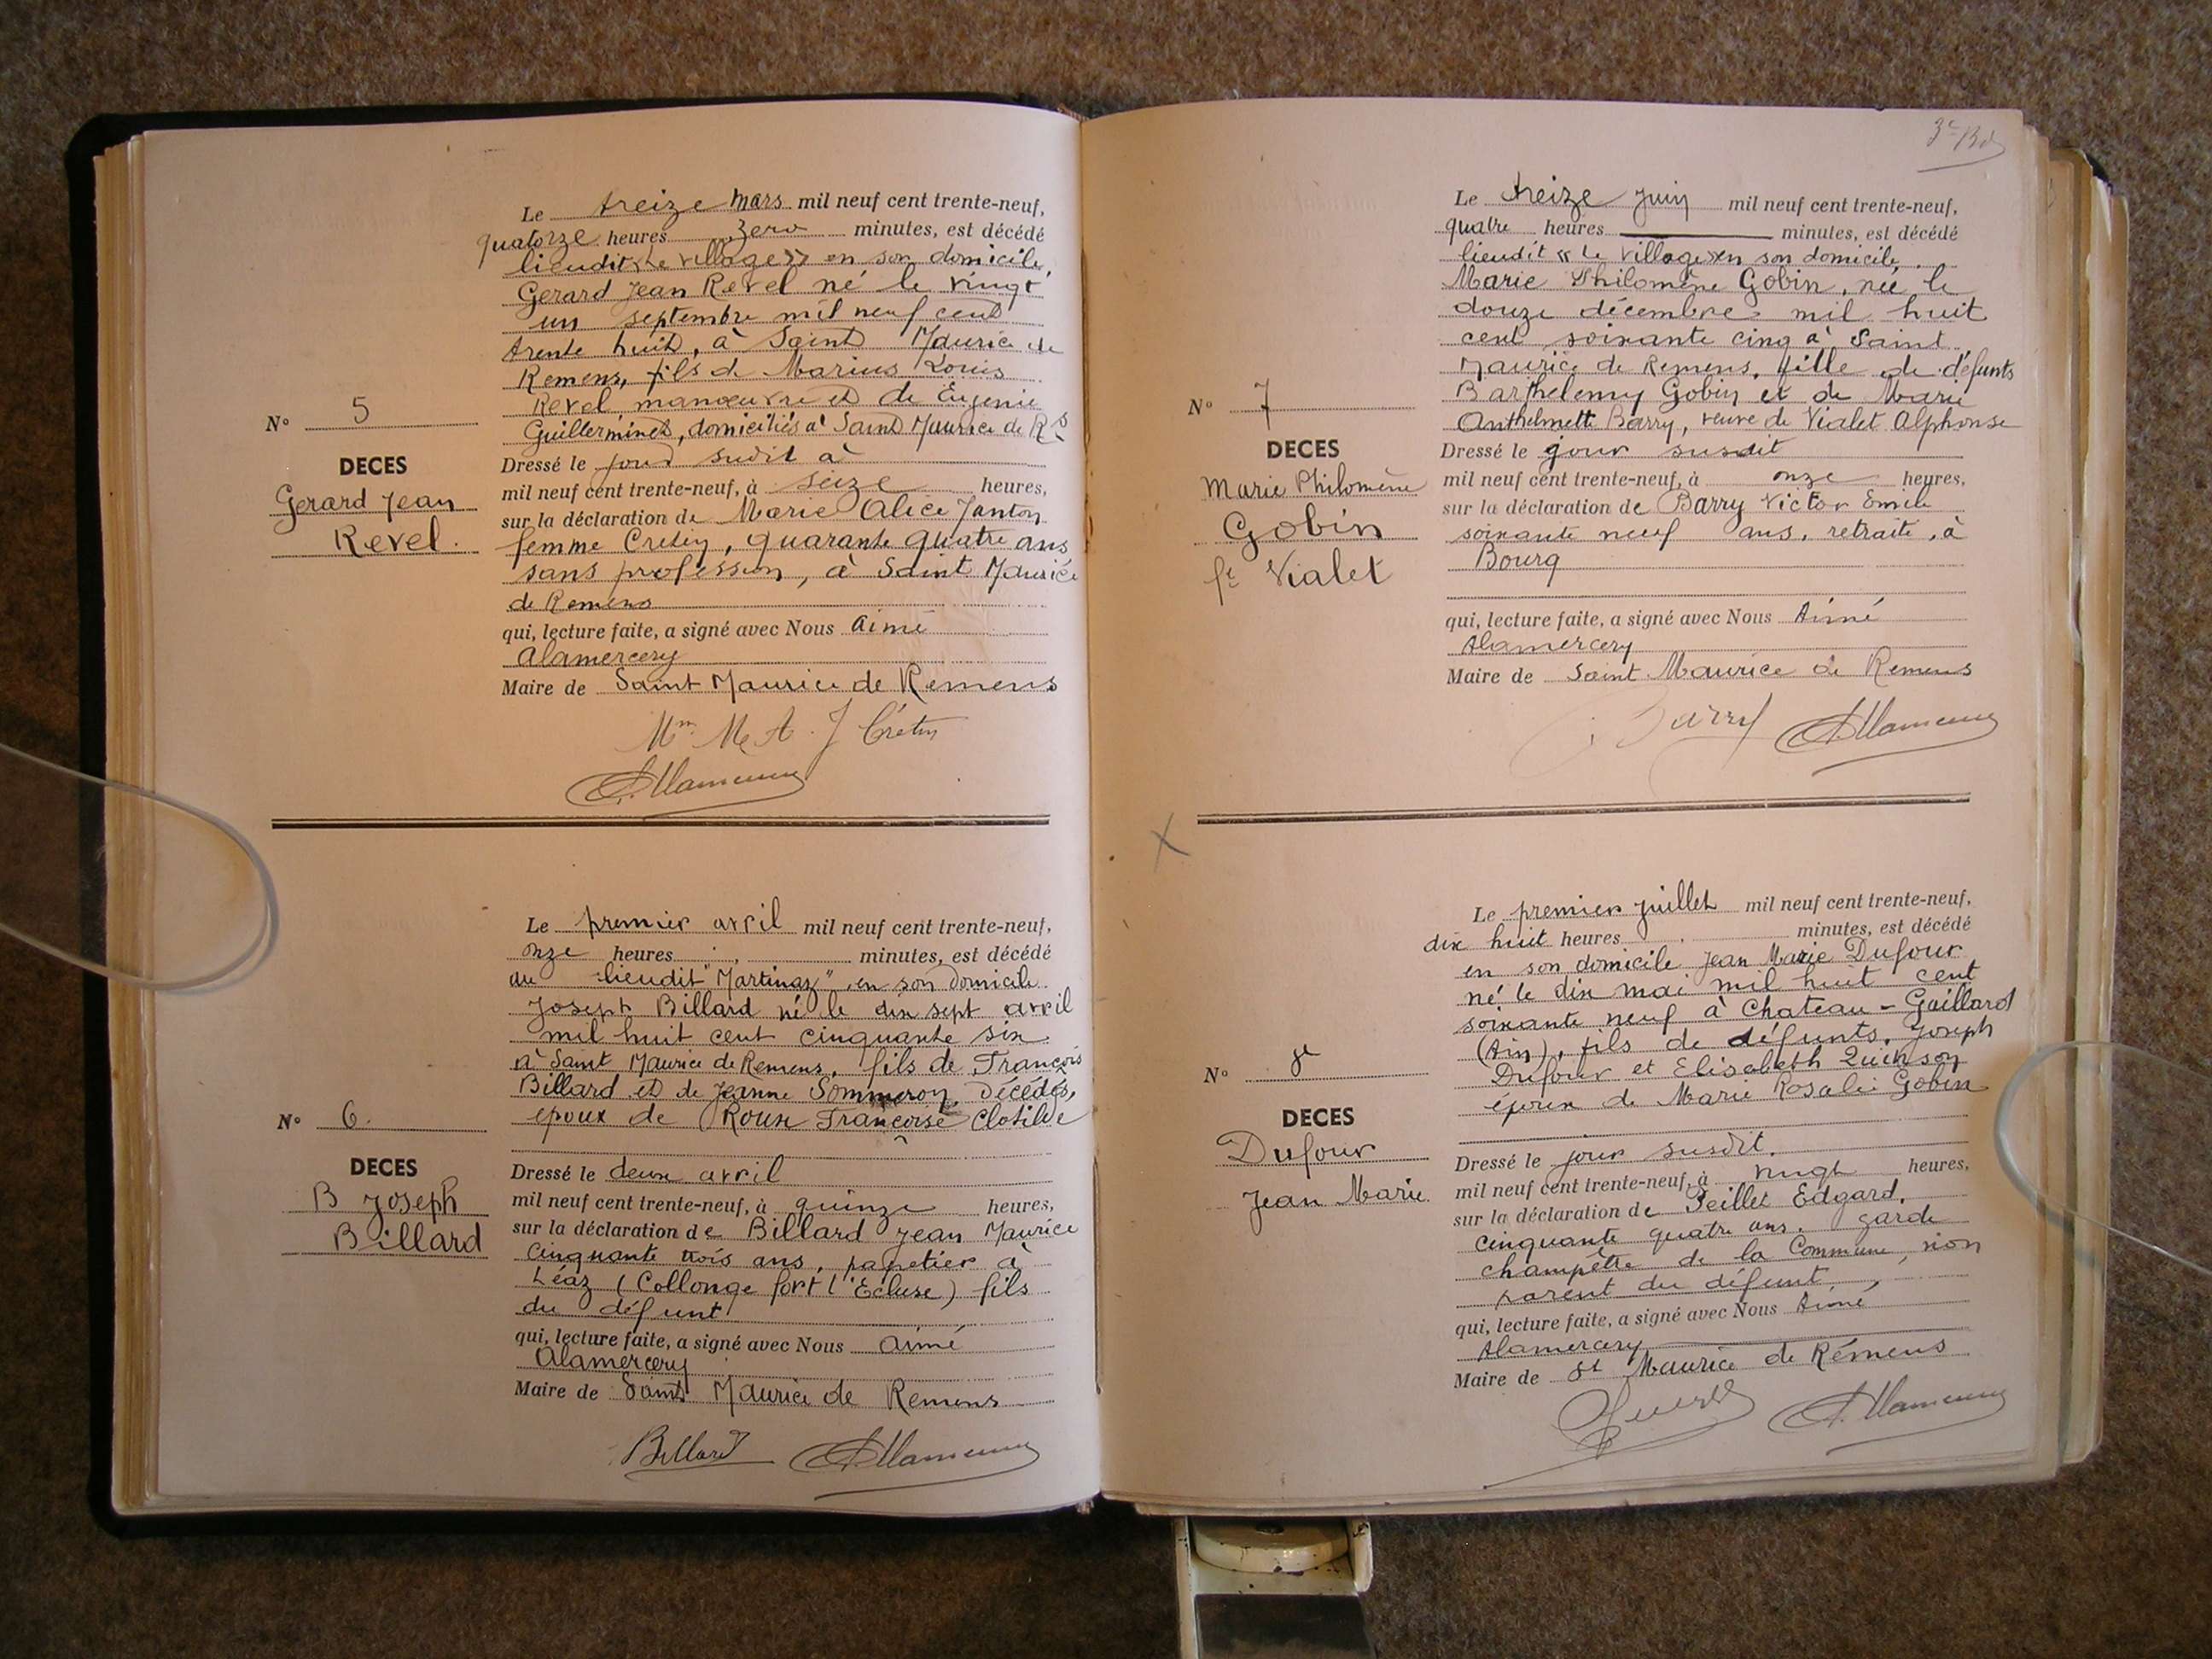 Le treize mars mil neuf cent trente-neuf,
quatorze heures zero minutes, est décédé
lieudit « Le village » en son domicile,
Gerard Jean Revel né le vingt
un septembre mil neuf cent
trente huit, à Saint Maurice de
Remens, fils de Marius Louis
Revel manœuvre et de Eugenie
Guillerminet, domiciliés à Saint Maurice de Rs
N° 5
DECES
Gerard Jean
Revel.
Dressé le jour sudit à
mil neuf cent trente-neuf, à seize heures,
sur la déclaration de Marie Alice Janton
femme Cretin, quarante quatre ans
sans profession, à Saint Maurice
de Remens
qui, lecture faite, a signé avec Nous Aimé
Alamercery
Maire de Saint Maurice de Remens
Mm M. A. J Crétin
Le premier avril mil neuf cent trente-neuf,
onze heures minutes, est décédé
au lieudit "Martinaz" en son domicile
Joseph Billard né le dix sept avril
mil huit cent cinquante six
à Saint Maurice de Remens, fils de François
Billard et de Jeanne Sommeron, Décédés,
époux de Roux Françoise Clotilde
N° 6.
DECES
B Joseph
Billard
Dressé le deux avril
mil neuf cent trente-neuf, à quinze heures,
sur la déclaration de Billard Jean Maurice
cinquante trois ans, papetier à
Léaz (Collonge fort l'Ecluse) fils
du défunt
qui, lecture faite, a signé avec Nous Aimé
Alamercery
Maire de Saint Maurice de Remens
Billard
Le treize Juin mil neuf cent trente-neuf,
quatre heures minutes, est décédé
lieudit « Le Village » en son domicile,
Marie Philomène Gobin, née le
douze décembre mil huit
cent soixante cinq à Saint
Maurice de Remens, fille de défunts
Barthelemy Gobin et de Marie
Anthelmette Barry, veuve de Vialet Alphonse
N° 7
DECES
Marie Philomène
Gobin
fe Vialet
Dressé le jour susdit
mil neuf cent trente-neuf, à onze heures,
sur la déclaration de Barry Victor Emile
soixante neuf ans, retraité, à
Bourg
qui, lecture faite, a signé avec Nous Aimé
Alamercery
Maire de Saint Maurice de Remens
Barry
Le premier juillet mil neuf cent trente-neuf,
dix huit heures minutes, est décédé
en son domicile Jean Marie Dufour
né le dix mai mil huit cent
soixante neuf à Chateau-Gaillard
(Ain), fils de défunts, Joseph
Dufour et Elisabeth
époux de Marie Rosalie Gobin
N° 8
DECES
Dufour
Jean Marie
Dressé le jour susdit.
mil neuf cent trente-neuf, à vingt heures,
sur la déclaration de Peillet Edgard,
cinquante quatre ans, garde
champêtre de la Commune, non
parent du défunt,
qui, lecture faite, a signé avec Nous Aimé
Alamercery
Maire de St Maurice de Rémens